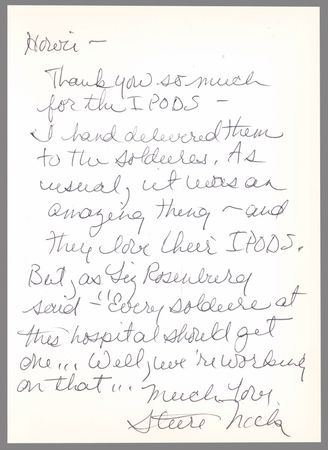 Howie —
Thank you so much
for the IPODS —
I hand delivered them
to the soldiers. As
usual, it was an
amazing thing — and
they love their IPODS.
But, as Liz Rosenberg
said — "Every soldier at
this hospital should get
one... Well, we're working
on that...
Much love,
Stevie Nicks